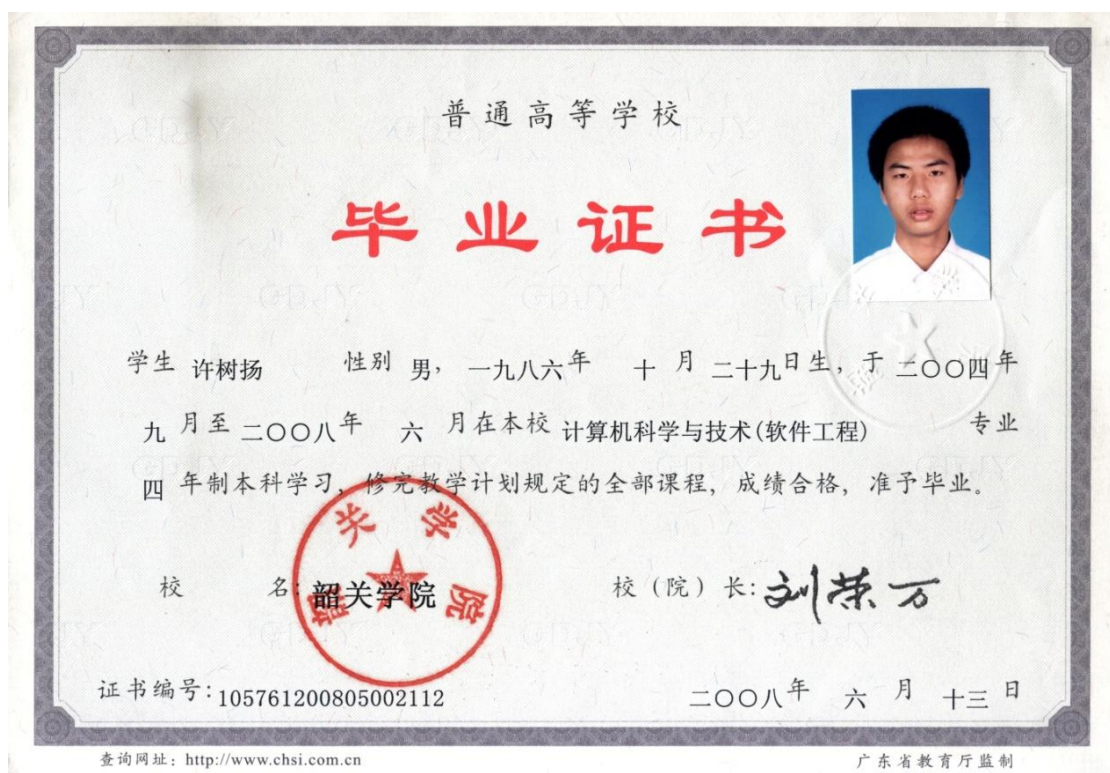 普通高等学校
毕业证书
学生 许树扬 性别 男，一九八六年 十 月 二十九日生，于 二〇〇四年
九 月至 二〇〇八年 六 月在本校 计算机科学与技术(软件工程) 专业
四 年制本科学习，修完教学计划规定的全部课程，成绩合格，准予毕业。
校 名：韶关学院 校（院）长：刘荣万
韶关学院
证书编号：105761200805002112 二〇〇八年 六 月 十三 日
查询网址：http://www.chsi.com.cn 广东省教育厅监制